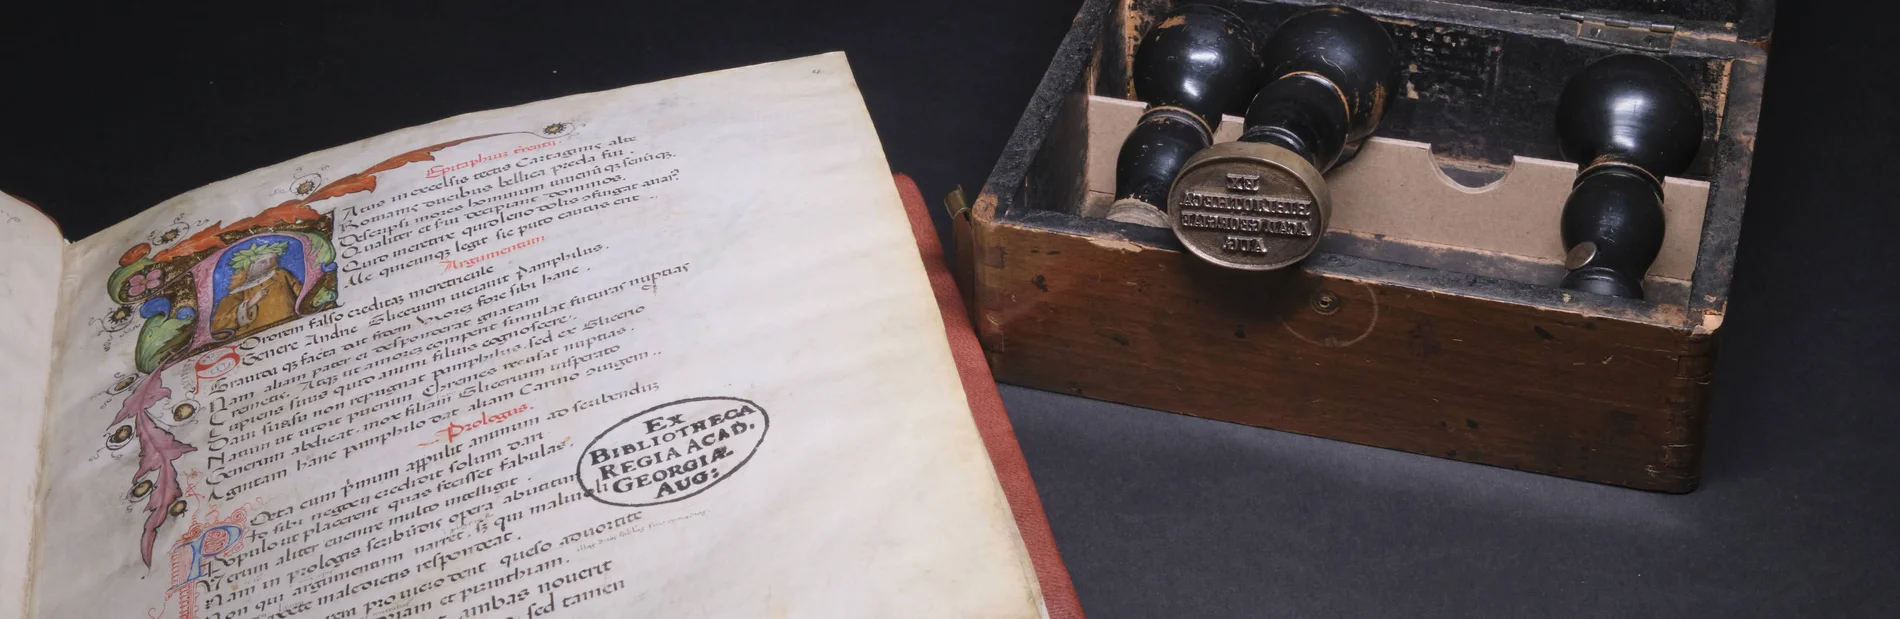 Epitaphium terentii.
Atus in excelsis tectis Cartaginis alte
Romanis ducibus bellica preda fui.
Descripsi mores hominum iuuenūqz senūqz.
Qualiter et serui decipiant dominos.
Quid meretrix quid leno dolis cōfingat
Hec quicunqz legit sic puto cautus erit
Argumentum
Sororem falso creditaz meretricule
Genere Andrie Glicerium uiciauit Pamphilus.
Grauida qz facta dat fidem uxorez fore sibi hanc.
Nam aliam pater ei desponderat gnatam
Cremetis. Atqz ut amorez comperit simulat futuras nuptias
Cupiens suus quid animi filius cognoscere.
Daui suasu non repugnat pamphilus. sed ex Glicerio
Natum ut uidit puerum Chremes recusat nuptias.
Generum abdicat. mox filiam Glicerium insperato
Agnitam hanc pamphilo dat aliam Carino
Prologus.
Poeta cum pīmum appulit animum ad scribenduz
Id sibi negocij credidit solum dari
Populo ut placerent quas fecisset fabulas.
Verum aliter euenire multo intelligit
Nam in prologis scribūdis opera abutitur
Non qui argumentum narret. sz qui maliuoli
maledictis respondeat.
queso aduortite
et perinthiam.
ambas nouerit
sed tamen
EX
BIBLIOTHECA
REGIA ACAD.
GEORGIÆ
AUG:
EX
BIBLIOTHECA
ACAD. GEORGIAE
AUG.